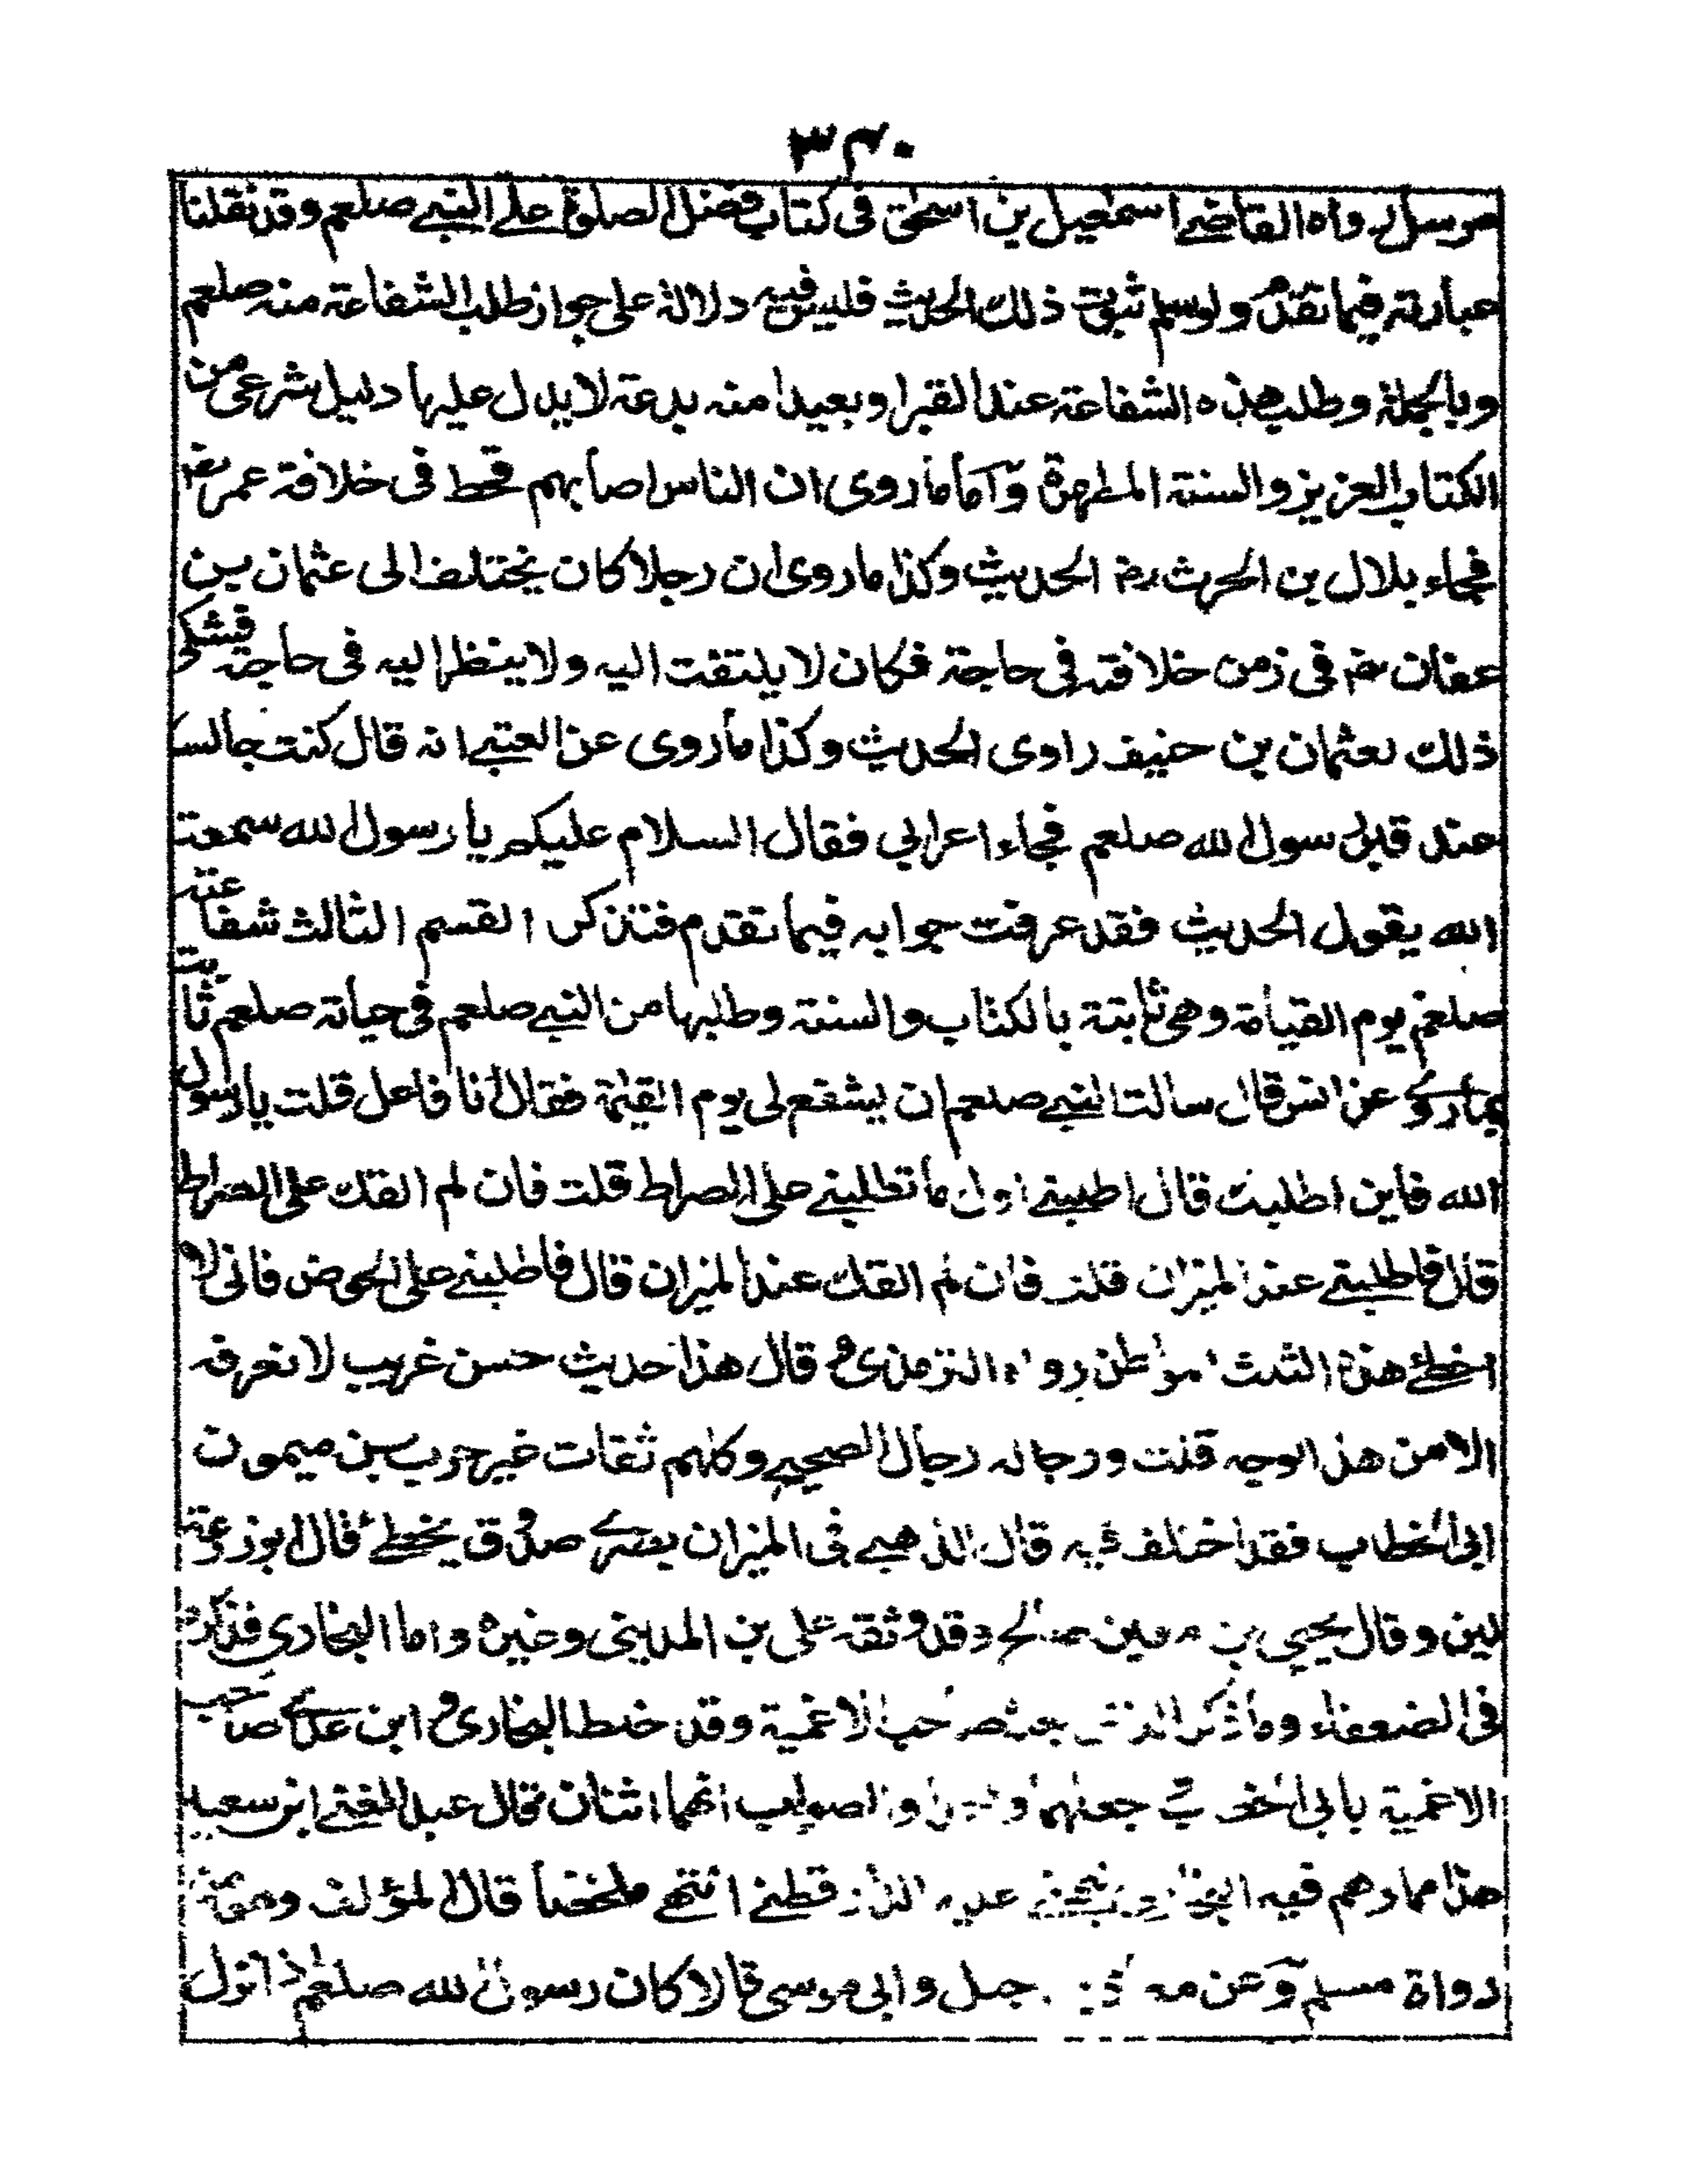 ٣٤٠
مرسل رواه القاضے اسمعيل بن اسحق فى كتاب فضل الصلوة علے النبے صلعم وقد نقلنا
عبارته فيما تقدم ولو سلم ثبوت ذلك الحديث فليس فيه دلالة على جواز طلب الشفاعة منه صلعم
وبالجملة وطلب هذه الشفاعة عند القبر او بعيدا منه بدعة لا يدل عليها دليل شرعى من
الكتاب العزيز والسنة المطهرة وآما ما روى ان الناس اصابهم قحط فى خلافة عمر رضہ
فجاء بلال بن الحرث رضہ الحديث وكذا ما روى ان رجلا كان يختلف الى عثمان بن
عفان رضہ فى زمن خلافته فى حاجة فكان لا يلتفت اليه ولا ينظر اليه فى حاجته فيشكى
ذلك لعثمان بن حنيف راوى الحديث وكذا ما روى عن العتبے انه قال كنت جالسا
عند قبر رسول الله صلعم فجاء اعرابي فقال السلام عليكم يا رسول الله سمعت
الله يقول الحديث فقد عرفت جوابه فيما تقدم فتذكر القسم الثالث شفاعته
صلعم يوم القيامة وهى ثابتة بالكتاب والسنة وطلبها من النبے صلعم فى حياته صلعم ثابت
بما روے عن انس قال سالت النبے صلعم ان يشفع لى يوم القيمة فقال انا فاعل قلت يا رسول
الله فاين اطلبك قال اطلبنے اول ما تطلبنے على الصراط قلت فان لم القك على الصراط
قال فاطلبنے عند الميزان قلت فان لم القك عند الميزان قال فاطلبنے على الحوض فانى لا
اخطئ هذه الثلث مواطن رواه الترمذى و قال هذا حديث حسن غريب لا نعرفه
الا من هذا الوجه قلت ورجاله رجال الصحيح وكلهم ثقات غير حرب بن ميمون
ابى الخطاب فقد اختلف فيه قال الذهبے فى الميزان بصرے صدوق يخطے قال ابو زرعة
لين وقال يحيى بن معين صالح وقد وثقه على بن المدينى وغيره واما البخارى فذكره
فى الضعفاء وما ذكر الذى بعد صاحب الاغمية وقد خلط البخارى و ابن عدے صاحب
الاغمية بابى الخطاب جعلهما واحدا والصواب انهما اثنان قال عبد الغنے ابن سعيد
هذا مما وهم فيه البخارى عليه الدارقطنے انتهے ملخصا قال المؤلف
رواة مسلم وعن معاذ بن جبل وابى موسى قالا كان رسول الله صلعم اذا نزل